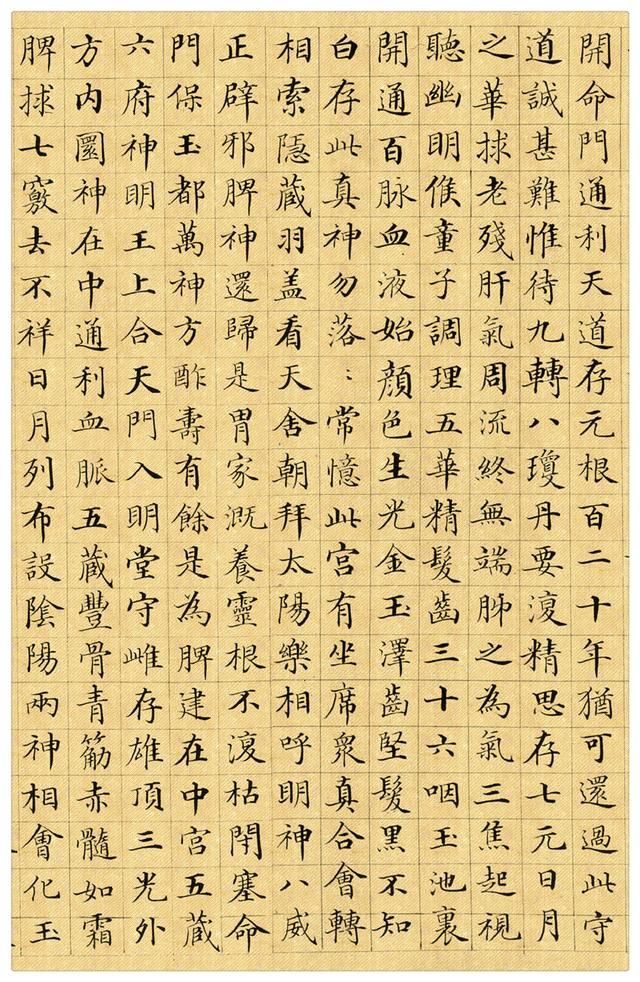 開命門通利天道存元根百二十年猶可還過此守
道誠甚難惟待九轉八瓊丹要復精思存七元日月
之華捄老殘肝氣周流終無端肺之為氣三焦起視
聽幽明候童子調理五華精髮齒三十六咽玉池裏
開通百脉血液始顏色生光金玉澤齒堅髮黑不知
白存此真神勿落〻常憶此宮有坐席衆真合會轉
相索隱藏羽盖看天舍朝拜太陽樂相呼明神八威
正辟邪脾神還歸是胃家溉養靈根不復枯閇塞命
門保玉都萬神方酢壽有餘是為脾建在中宮五藏
六府神明王上合天門入明堂守雌存雄頂三光外
方内圎神在中通利血脈五藏豐骨青筋赤髓如霜
脾捄七竅去不祥日月列布設陰陽兩神相會化玉